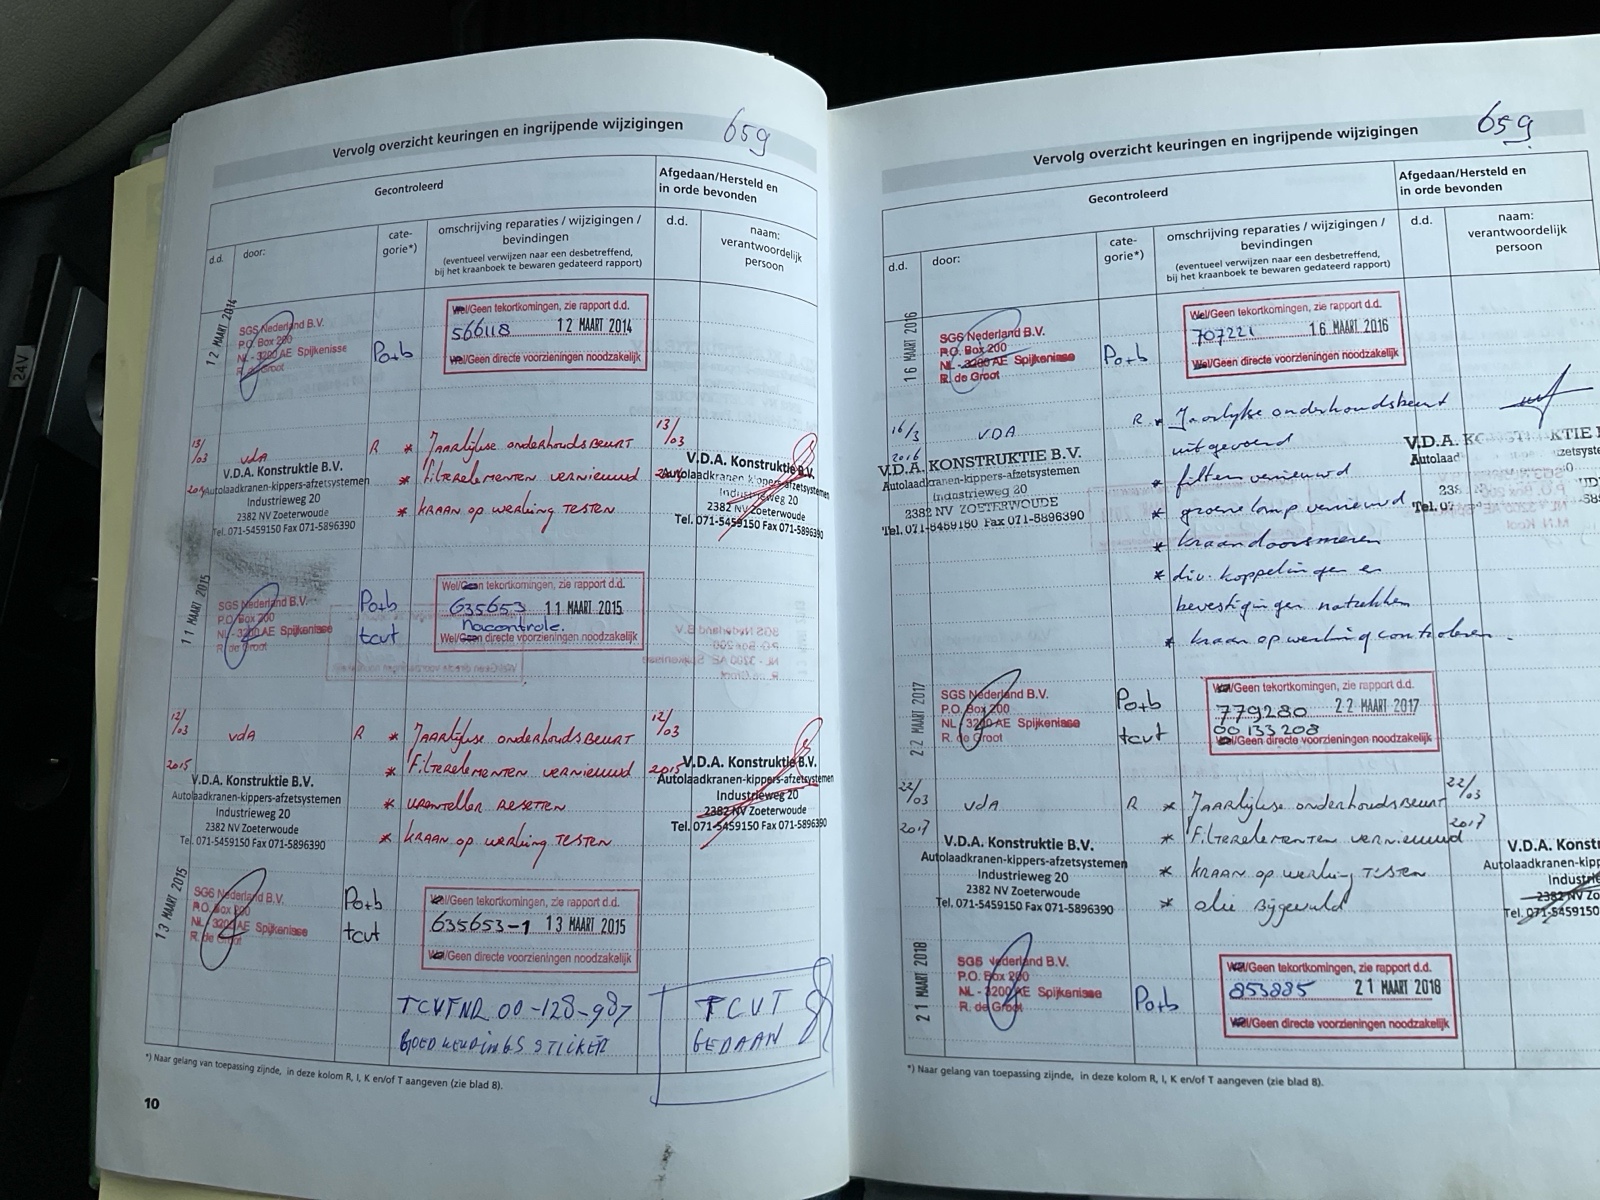 24V
Vervolg overzicht keuringen en ingrijpende wijzigingen
659
Gecontroleerd
Afgedaan/Hersteld en
in orde bevonden
d.d.
door:
cate-
gorie*)
omschrijving reparaties / wijzigingen /
bevindingen
(eventueel verwijzen naar een desbetreffend,
bij het kraanboek te bewaren gedateerd rapport)
d.d.
naam:
verantwoordelijk
persoon
12 MAART 2014
SGS Nederland B.V.
P.O. Box 200
NL - 3200 AE Spijkenisse
R. de Groot
Po+b
Wel/Geen tekortkomingen, zie rapport d.d.
566118 12 MAART 2014
Wel/Geen directe voorzieningen noodzakelijk
13/03
vdA
R
* Jaarlijkse onderhoudsbeurt
* Filterelementen vernieuwd
* Kraan op werking testen
V.D.A. Konstruktie B.V.
Autolaadkranen-kippers-afzetsystemen
Industrieweg 20
2382 NV Zoeterwoude
Tel. 071-5459150 Fax 071-5896390
13/03
V.D.A. Konstruktie B.V.
Autolaadkranen-kippers-afzetsystemen
Industrieweg 20
2382 NV Zoeterwoude
Tel. 071-5459150 Fax 071-5896390
11 MAART 2015
SGS Nederland B.V.
P.O. Box 200
NL - 3200 AE Spijkenisse
R. de Groot
Po+b
tcvt
Wel/Geen tekortkomingen, zie rapport d.d.
635653 11 MAART 2015
nacontrole.
Wel/Geen directe voorzieningen noodzakelijk
12/03
2015
vdA
R
* Jaarlijkse onderhoudsbeurt
* Filterelementen vernieuwd
* urenteller resetten
* Kraan op werking testen
V.D.A. Konstruktie B.V.
Autolaadkranen-kippers-afzetsystemen
Industrieweg 20
2382 NV Zoeterwoude
Tel. 071-5459150 Fax 071-5896390
12/03
2015
V.D.A. Konstruktie B.V.
Autolaadkranen-kippers-afzetsystemen
Industrieweg 20
2382 NV Zoeterwoude
Tel. 071-5459150 Fax 071-5896390
13 MAART 2015
SGS Nederland B.V.
P.O. Box 200
NL - 3200 AE Spijkenisse
R. de Groot
Po+b
tcvt
Wel/Geen tekortkomingen, zie rapport d.d.
635653-1 13 MAART 2015
Wel/Geen directe voorzieningen noodzakelijk
TCVTNR 00-128-987
GOEDKEURINGS STICKER
TCVT
GEDAAN
*) Naar gelang van toepassing zijnde, in deze kolom R, I, K en/of T aangeven (zie blad 8).
10
Vervolg overzicht keuringen en ingrijpende wijzigingen
659
Gecontroleerd
Afgedaan/Hersteld en
in orde bevonden
d.d.
door:
cate-
gorie*)
omschrijving reparaties / wijzigingen /
bevindingen
(eventueel verwijzen naar een desbetreffend,
bij het kraanboek te bewaren gedateerd rapport)
d.d.
naam:
verantwoordelijk
persoon
16 MAART 2016
SGS Nederland B.V.
P.O. Box 200
NL - 3200 AE Spijkenisse
R. de Groot
Po+b
Wel/Geen tekortkomingen, zie rapport d.d.
707221 16 MAART 2016
Wel/Geen directe voorzieningen noodzakelijk
16/3
2016
VDA
R
* Jaarlijkse onderhoudsbeurt
uitgevoerd
* filters vernieuwd
* groene lamp vernieuwd
* kraan doorsmeren
* div. koppelingen en
bevestigingen natrekken
* kraan op werking controleren.
V.D.A. KONSTRUKTIE B.V.
Autolaadkranen-kippers-afzetsystemen
Industrieweg 20
2382 NV ZOETERWOUDE
Tel. 071-5459150 Fax 071-5896390
22 MAART 2017
SGS Nederland B.V.
P.O. Box 200
NL - 3200 AE Spijkenisse
R. de Groot
Po+b
tcvt
Wel/Geen tekortkomingen, zie rapport d.d.
779280 22 MAART 2017
00 133 208
Wel/Geen directe voorzieningen noodzakelijk
22/03
2017
vdA
R
* Jaarlijkse onderhoudsbeurt
* Filterelementen vernieuwd
* Kraan op werking testen
* olie bijgevuld
V.D.A. Konstruktie B.V.
Autolaadkranen-kippers-afzetsystemen
Industrieweg 20
2382 NV Zoeterwoude
Tel. 071-5459150 Fax 071-5896390
22/03
2017
V.D.A. Konst
Autolaadkranen-kipp
Industrie
2382 NV Zo
Tel. 071-5459150
21 MAART 2018
SGS Nederland B.V.
P.O. Box 200
NL - 3200 AE Spijkenisse
R. de Groot
Po+b
Wel/Geen tekortkomingen, zie rapport d.d.
853885 21 MAART 2018
Wel/Geen directe voorzieningen noodzakelijk
*) Naar gelang van toepassing zijnde, in deze kolom R, I, K en/of T aangeven (zie blad 8).